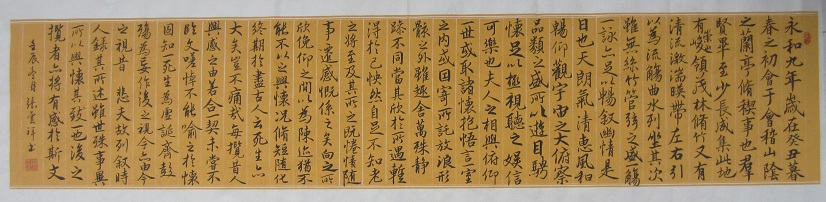 永和九年歲在癸丑暮
春之初會于會稽山陰
之蘭亭脩稧事也羣
賢畢至少長咸集此地
有崇山峻領茂林脩竹又有
清流激湍暎帶左右引
以為流觴曲水列坐其次
雖無絲竹管弦之盛一觴
一詠亦足以暢叙幽情是
日也天朗氣清惠風和
暢仰觀宇宙之大俯察
品類之盛所以遊目騁
懷足以極視聽之娛信
可樂也夫人之相與俯仰
一世或取諸懷抱悟言一室
之內或因寄所託放浪形
骸之外雖趣舍萬殊靜
躁不同當其欣於所遇暫
得於己怏然自足不知老
之將至及其所之既惓情隨
事遷感慨係之矣向之所
欣俛仰之間以為陳迹猶不
能不以之興懷況脩短隨化
終期於盡古人云死生亦
大矣豈不痛哉每攬昔人
興感之由若合一契未嘗不
臨文嗟悼不能喻之於懷
固知一死生為虛誕齊彭
殤為妄作後之視今亦由今
之視昔 悲夫故列叙時
人錄其所述雖世殊事異
所以興懷其致一也後之
攬者亦將有感於斯文
壬辰冬月 張雲祥書